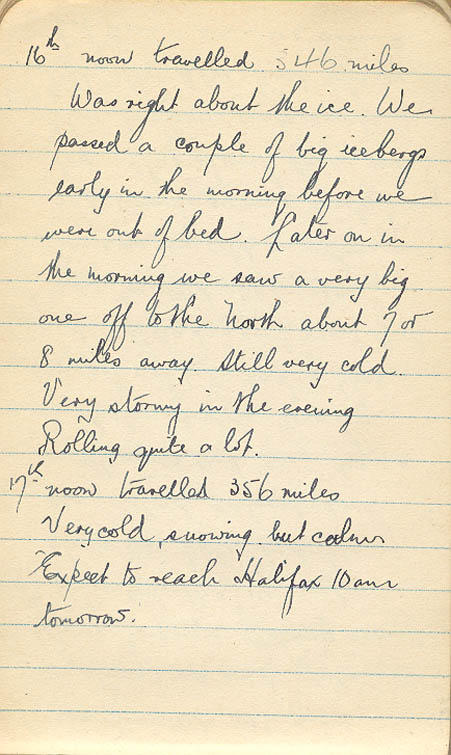 16th noon travelled 346 miles
Was right about the ice. We
passed a couple of big icebergs
early in the morning before we
were out of bed. Later on in
the morning we saw a very big
one off to the North about 7 or
8 miles away. Still very cold.
Very stormy in the evening
Rolling quite a lot.
17th noon travelled 356 miles
Very cold, snowing but calm
Expect to reach Halifax 10 am
tomorrow.